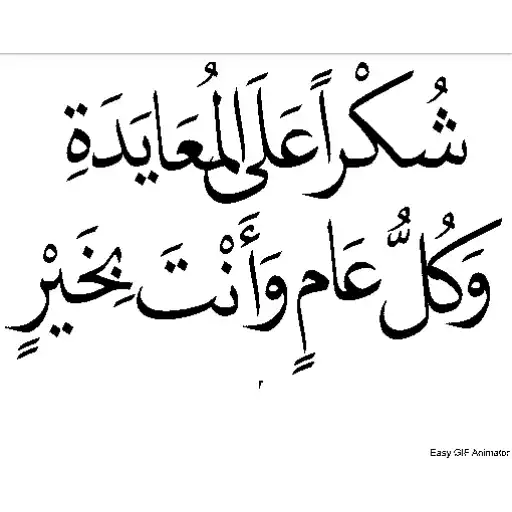 شُكْراً عَلَى المُعَايَدَةِ
وَكُلُّ عَامٍ وَأَنْتَ بِخَيْرٍ
Easy GIF Animator